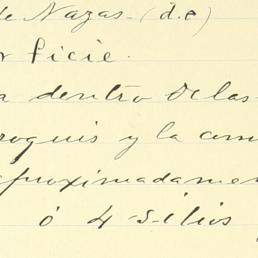 de Nazas. (d.e)
ficie.
a dentro de las
roquis y la
aproximadamen
ó 4 sitios